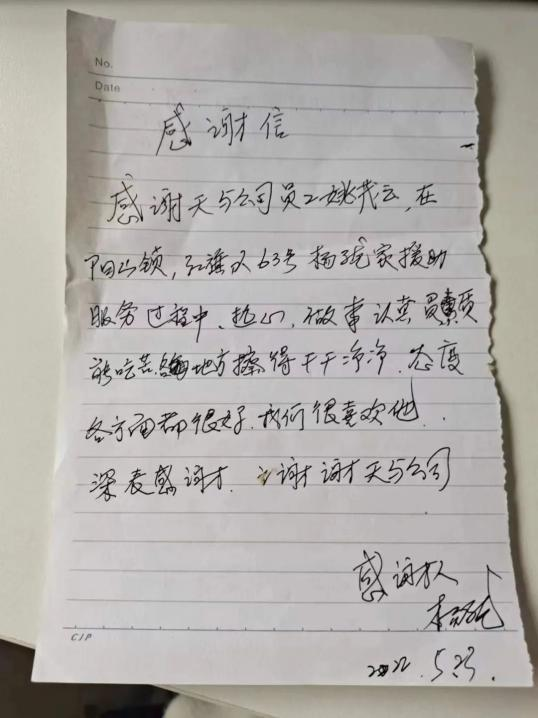 No.
Date
感谢信
感谢天与公司员工姚茂云,在
阳山镇,红旗又63号杨统家援助
服务过程中、热心、做事认真负责
能吃苦、地方擦得干干净净、态度
各方面都很好.我们很喜欢他.
深表感谢、谢谢天与公司
感谢人
杨
2022.5.23.
CIP